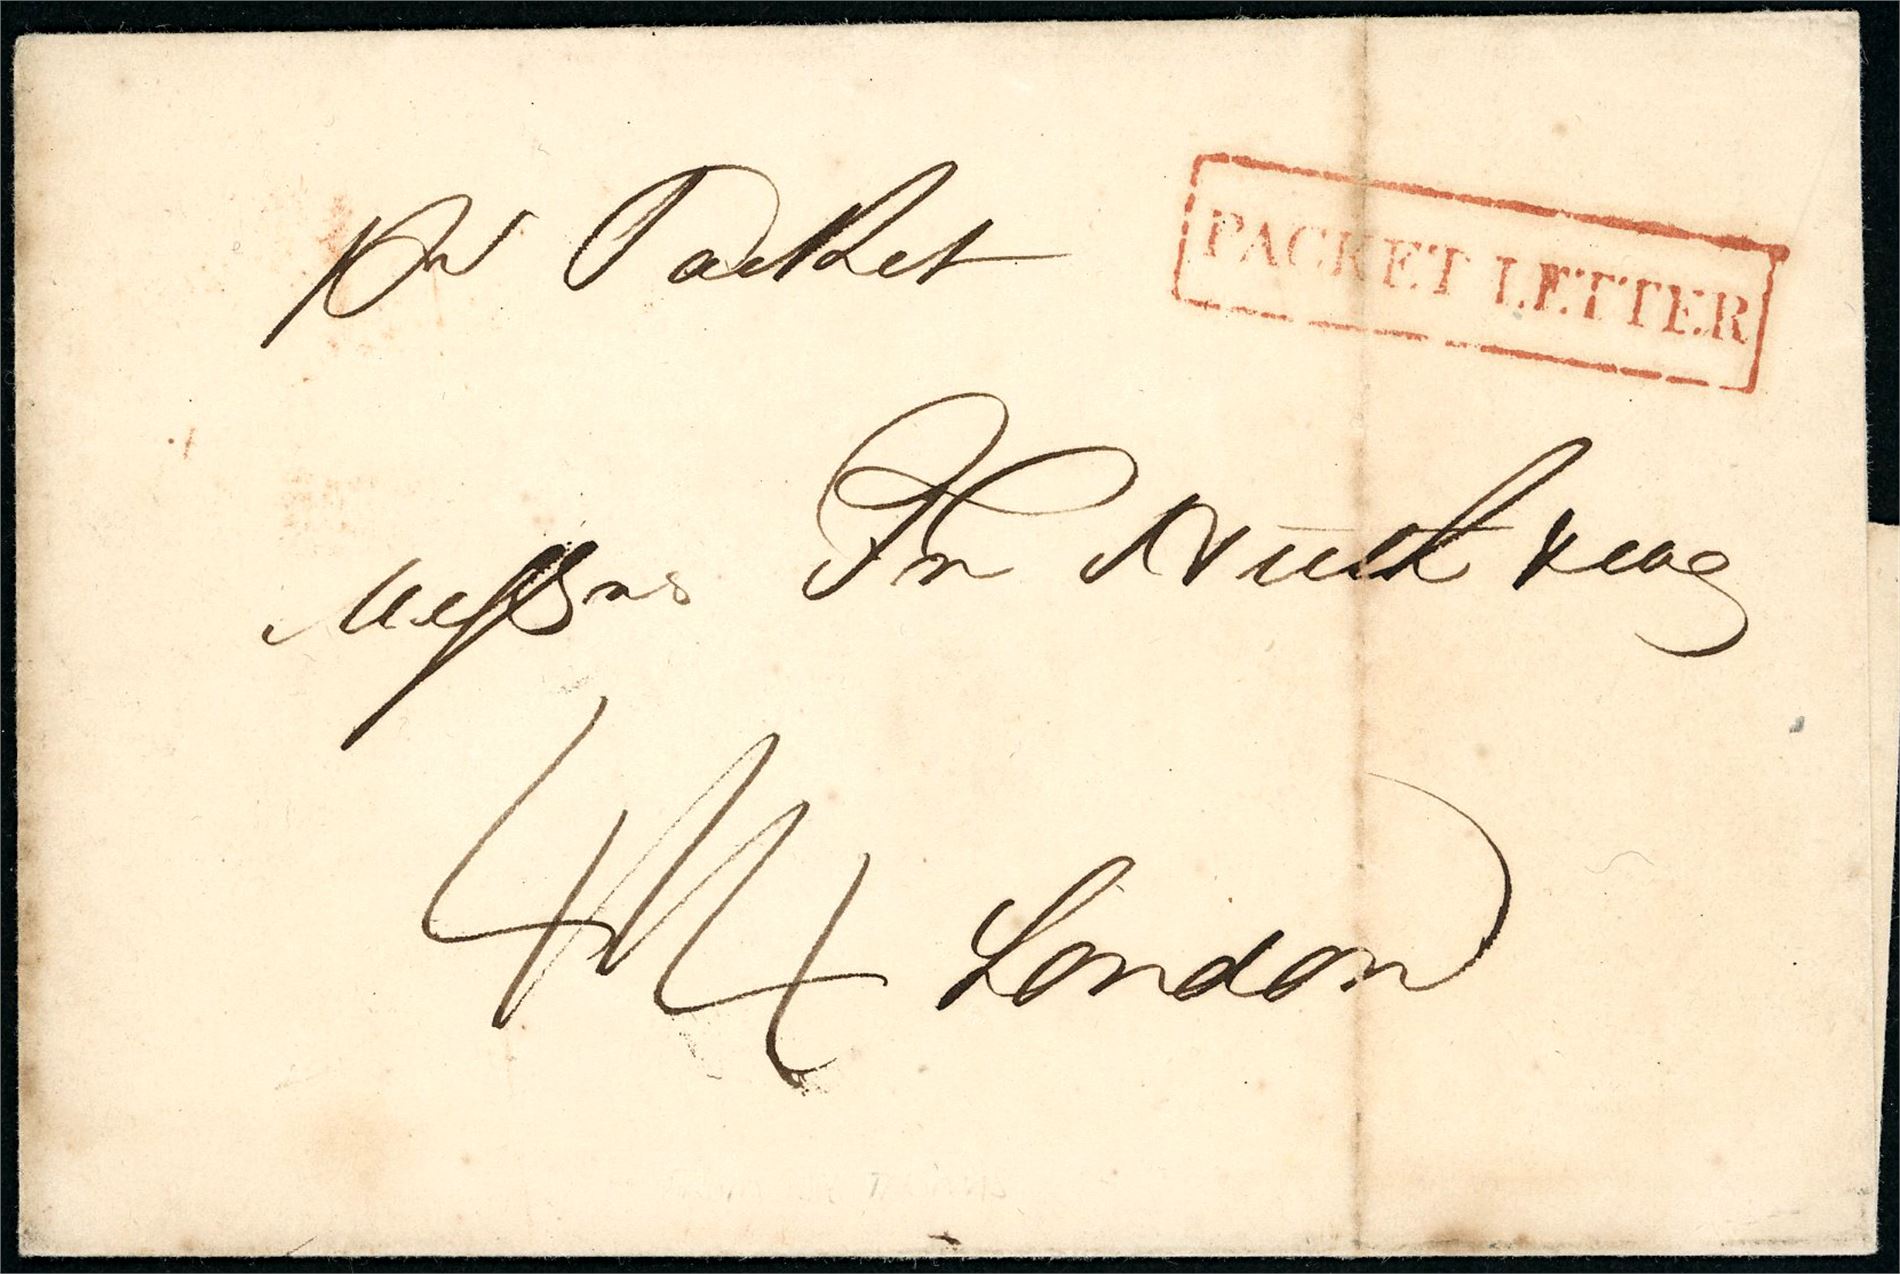 pr Packet
PACKET LETTER
Messrs Fn Huth &
London